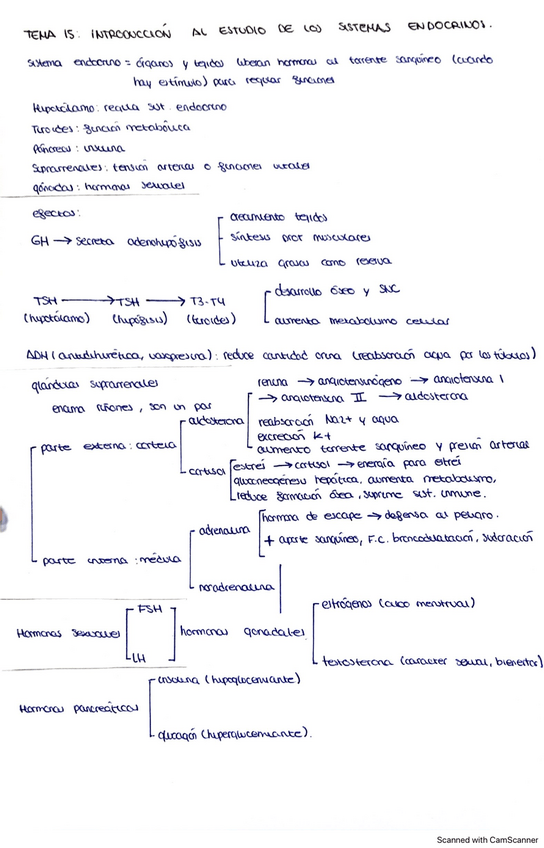 TEMA 15: INTRODUCCIÓN AL ESTUDIO DE LOS SISTEMAS ENDOCRINOS.
Sistema endocrino = órganos y tejidos liberan hormonas al torrente sanguíneo (cuando
hay estímulo) para regular funciones
Hipotálamo: regula sist. endocrino
Tiroides: función metabólica
Páncreas: insulina
Suprarrenales: tensión arterial o funciones vitales
gónadas: hormonas sexuales
efectos:
GH → secreta adenohipófisis
crecimiento tejidos
síntesis prot musculares
utiliza grasas como reserva
TSH → TSH → T3-T4
(hipotálamo) (hipófisis) (tiroides)
desarrollo óseo y SNC
aumenta metabolismo celular
ADH (antidiurética, vasopresina): reduce cantidad orina (reabsorción agua por los túbulos)
glándulas suprarrenales
encima riñones, son un par
parte externa: corteza
aldosterona
renina → angiotensinógeno → angiotensina I
→ angiotensina II → aldosterona
reabsorción Na2+ y agua
excreción K+
aumento torrente sanguíneo y presión arterias
cortisol
estrés → cortisol → energía para estrés
gluconeogénesis hepática, aumenta metabolismo,
reduce formación ósea, suprime sist. inmune.
parte interna: médula
adrenalina
hormona de escape → defensa al peligro.
+ aporte sanguíneo, F.C. broncodilatación, sudoración
noradrenalina
Hormonas sexuales
FSH
LH
hormonas gonadales
estrógenos (ciclo menstrual)
testosterona (caracter sexual, bienestar)
Hormonas pancreáticas
insulina (hipoglucemiante)
glucagón (hiperglucemiante).
Scanned with CamScanner